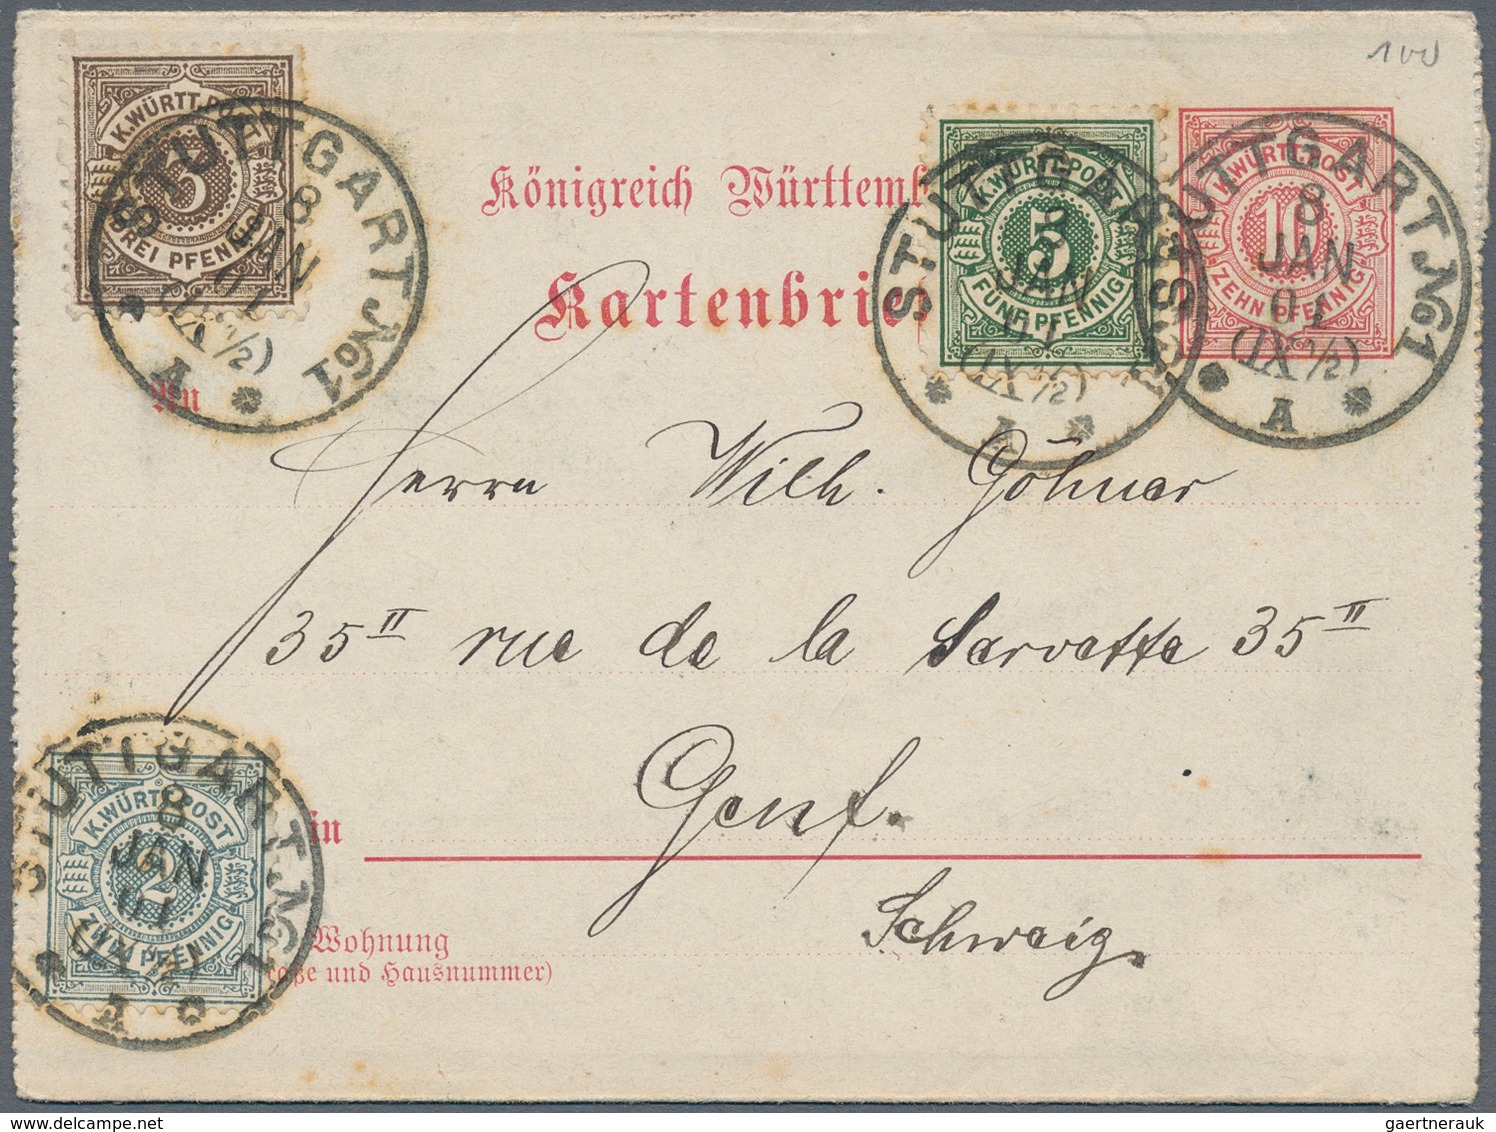 100
K.WÜRTT.POST
3
DREI PFENNIG
STUTTGART No 1
8
JAN
(IX ½)
A
Königreich Württemb
Kartenbrie
K.WÜRTT.POST
5
FÜNF PFENNIG
STUTTGART No 1
8
JAN
01
(IX ½)
A
K.WÜRTT.POST
10
ZEHN PFENNIG
STUTTGART No 1
8
JAN
01
(IX ½)
A
An
Herrn Wilh. Göhner
35 II rue de la Servette 35 II
Genf.
in
Schweiz
K.WÜRTT.POST
2
ZWEI PFENNIG
STUTTGART No 1
8
JAN
01
A
Wohnung
aße und Hausnummer)
gaertnerauk @ delcampe.net